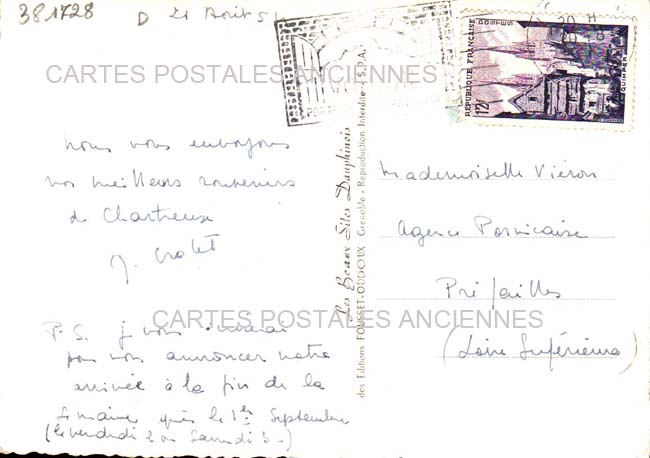 381728
D 21 Août 5
CARTES POSTALES ANCIENNES
I.S.P.A.
RÉPUBLIQUE FRANÇAISE
POSTES
12F
QUIMPER
Nous vous envoyons
nos meilleurs souvenirs
de Chartreuse
J.
P.S. je vous
pour vous annoncer notre
arrivée à la fin de la
semaine après le 1er Septembre
(le vendredi 2 ou Samedi 3.)
Les Beaux Sites Dauphinois
des Editions FOUSSET-ODDOUX Grenoble - Reproduction Interdite -
Mademoiselle Viéron
Agence Pornicaise
Préfailles
(Loire Inférieure)
CARTES POSTALES ANCIENNES